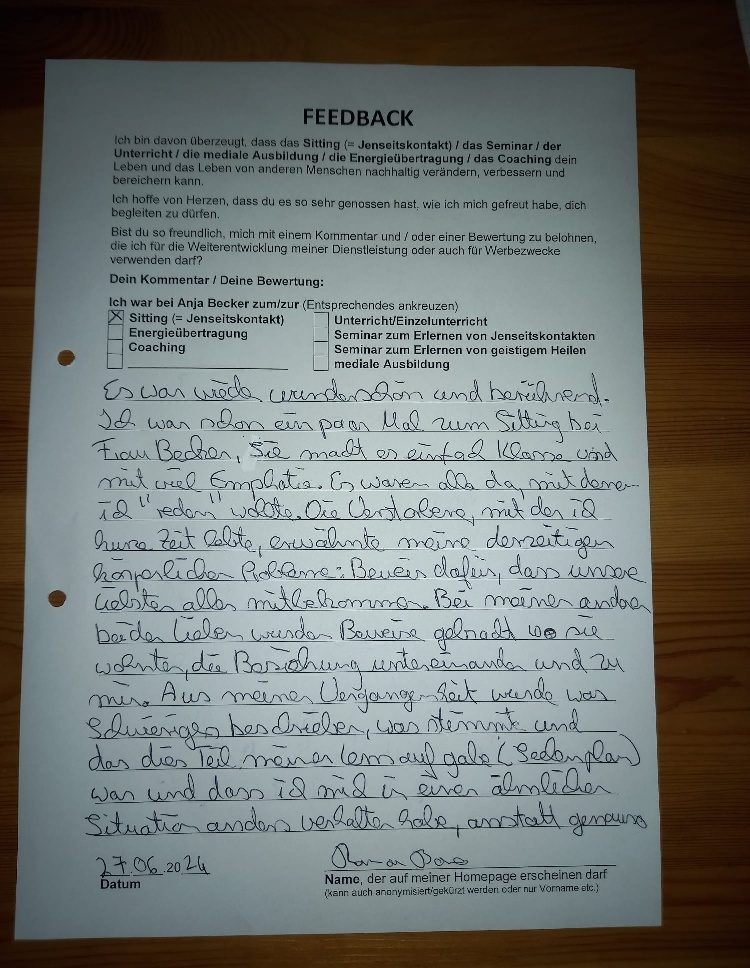 FEEDBACK
Ich bin davon überzeugt, dass das Sitting (= Jenseitskontakt) / das Seminar / der
Unterricht / die mediale Ausbildung / die Energieübertragung / das Coaching dein
Leben und das Leben von anderen Menschen nachhaltig verändern, verbessern und
bereichern kann.
Ich hoffe von Herzen, dass du es so sehr genossen hast, wie ich mich gefreut habe, dich
begleiten zu dürfen.
Bist du so freundlich, mich mit einem Kommentar und / oder einer Bewertung zu belohnen,
die ich für die Weiterentwicklung meiner Dienstleistung oder auch für Werbezwecke
verwenden darf?
Dein Kommentar / Deine Bewertung:
Ich war bei Anja Becker zum/zur (Entsprechendes ankreuzen)
Sitting (= Jenseitskontakt)
Energieübertragung
Coaching
Unterricht/Einzelunterricht
Seminar zum Erlernen von Jenseitskontakten
Seminar zum Erlernen von geistigem Heilen
mediale Ausbildung
Es war wieder wunderschön und berührend.
Ich war schon ein paar Mal zum Sitting bei
Frau Becker, Sie macht es einfach Klasse und
mit viel Emphatie. Es waren alle da, mit denen
ich "reden" wollte. Die Verstorbene, mit der ich
kurze Zeit lebte, erwähnte meine derzeitigen
körperlichen Probleme: Beweis dafür, dass unsere
Liebsten alles mitbekommen. Bei meinen anderen
beiden Lieben wurden Beweise gebracht wo sie
wohnten, die Beziehung untereinander und zu
mir. Aus meiner Vergangenheit wurde was
Schwieriges beschrieben, was stimmte und
das dies Teil meiner Lernaufgabe (Seelenplan)
war und dass ich mich in einer ähnlichen
Situation anders verhalten habe, anstatt genauso
27.06.2024
Datum
Name, der auf meiner Homepage erscheinen darf
(kann auch anonymisiert/gekürzt werden oder nur Vorname etc.)